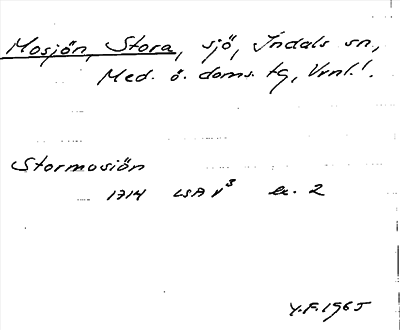 Mosjön, Stora, sjö, Indals sn,
Med. ö. doms. tg, Vrnl.!
Stormosiön
1714 LSA V³ ex. 2
Y.F. 1965